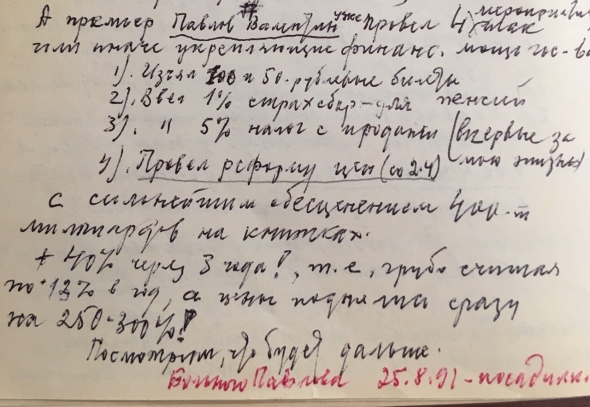 А премьер Павлов Валентин уже провел 4 мероприятия, так
или иначе укрепляющие финанс. мощь гос-ва
1). Изъял 100 и 50-рублевые билеты
2). Ввел 1% страхсбор-для пенсий
3). " 5% налог с продажи (впервые за мою жизнь)
4). Провел реформу цен (со 2.4)
с сильнейшим обесценением 400-т
миллиардов на книжках.
+ 40% через 3 года!, т.е., грубо считая
по 12% в год, а цены подняли сразу
на 250-300%!
Посмотрим, что будет дальше.
Больного Павлова 25.8.91-посадили.